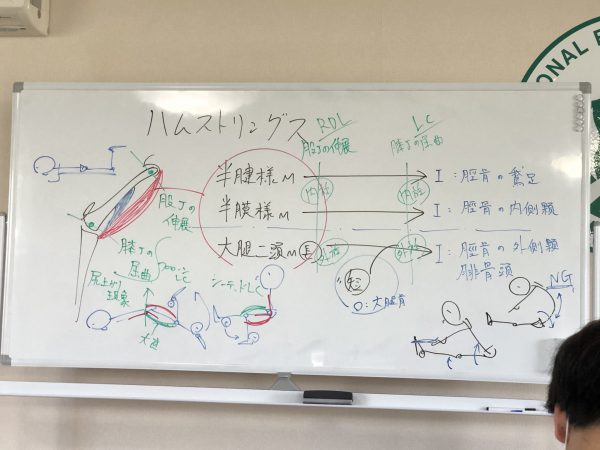 ハムストリングス
RDL
股Jの伸展
LC
膝Jの屈曲
半腱様M
内旋
内旋
I：脛骨の鵞足
半膜様M
I：脛骨の内側顆
大腿二頭M 長
外旋
外旋
I：脛骨の外側顆
腓骨頭
短
O：大腿骨
股Jの
伸展
膝Jの
屈曲
LC
尻上がり
現象
シーテッドLC
NG
ONAL